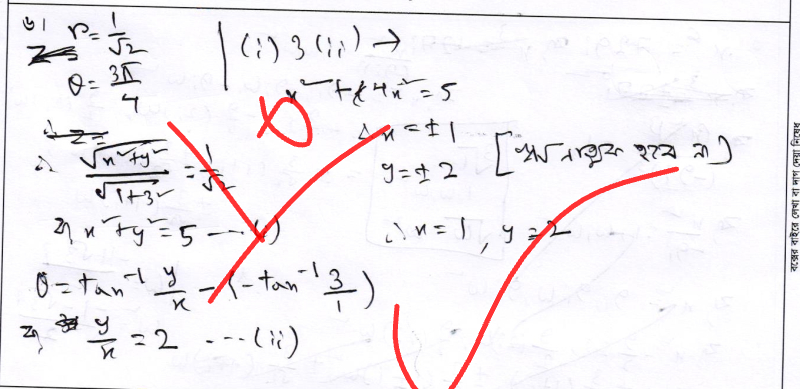 ৬। r = 1/√2
θ = 3π/4
∴ √(x²+y²)/√(1+3²) = 1/√2
⇒ x²+y² = 5 ---- (i)
θ = tan⁻¹ y/x - (-tan⁻¹ 3/1)
⇒ y/x = 2 ---- (ii)
(i) ও (ii) →
x² + 4x² = 5
∴ x = ±1
y = ±2
∴ x = 1, y = 2
বক্সের বাইরে লেখা বা দাগ দেয়া নিষেধ